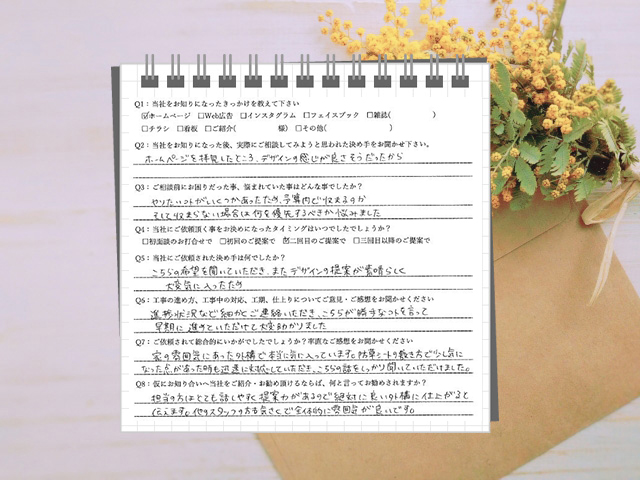 Q1：当社をお知りになったきっかけを教えて下さい
☑ホームページ　□Web広告　□インスタグラム　□フェイスブック　□雑誌(　　　　)
□チラシ　□看板　□ご紹介(　　　　　様)　□その他(　　　　　　　)
Q2：当社をお知りになった後、実際にご相談してみようと思われた決め手をお聞かせ下さい。
ホームページを拝見したところ、デザインの感じが良さそうだったから
Q3：ご相談前にお困りだった事、悩まれていた事はどんな事でしたか？
やりたいコトがいくつかあったため、予算内で収まるのか
そして収まらない場合は何を優先するべきか悩みました
Q4：当社にご依頼頂く事をお決めになったタイミングはいつでしたでしょうか？
□初面談のお打合せで　□初回のご提案で　☑二回目のご提案で　□三回目以降のご提案で
Q5：当社にご依頼された決め手は何でしたか？
こちらの希望を聞いていただき、またデザインの提案が素晴らしく
大変気に入ったため
Q6：工事の進め方、工事中の対応、工期、仕上りについてご意見・ご感想をお聞かせください
進捗状況など細かくご連絡いただき、こちらが勝手なコトを言って
早期に進めていただけて大変助かりました
Q7：ご依頼されて総合的にいかがでしたでしょうか？率直なご感想をお聞かせください
家の雰囲気にあった外構で本当に気に入っています。防草シートの敷き方で少し気に
なった点があった時も迅速に対応していただき、こちらの話をしっかり聞いていただけました。
Q8：仮にお知り合いへ当社をご紹介・お勧め頂けるならば、何と言ってお勧めされますか？
担当の方はとても話しやすく提案力があるので絶対に良い外構に仕上がると
伝えます。他のスタッフの方も気さくで全体的に雰囲気が良いです。